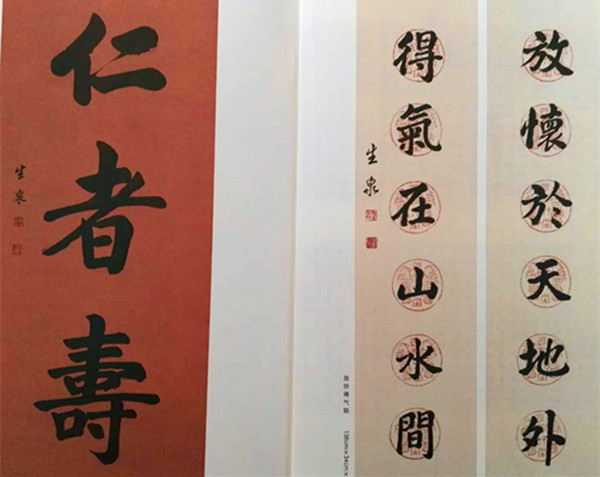 仁者壽
生泉
放懷於天地外
得氣在山水間
生泉
放怀得气联 138cm×34cm×